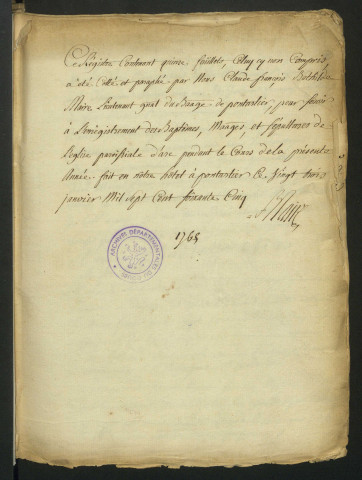 Ce Régistre Contenant quinze feuillets, Celuy cy non Compris,
a été Cotté et paraphé par Nous Claude françois
Maire Lieutenant gnal du Bailliage de pontarlier, pour servir
à L'enregistrement des Baptêmes, Mariages, et sépultures de
L'église paroissiale d'arc pendant le Cours de la présente
Année. fait en notre hotel à pontarlier Ce Vingt trois
janvier Mil sept Cent soixante Cinq
Maire
1765
ARCHIVES DÉPARTEMENTALES
DU DOUBS